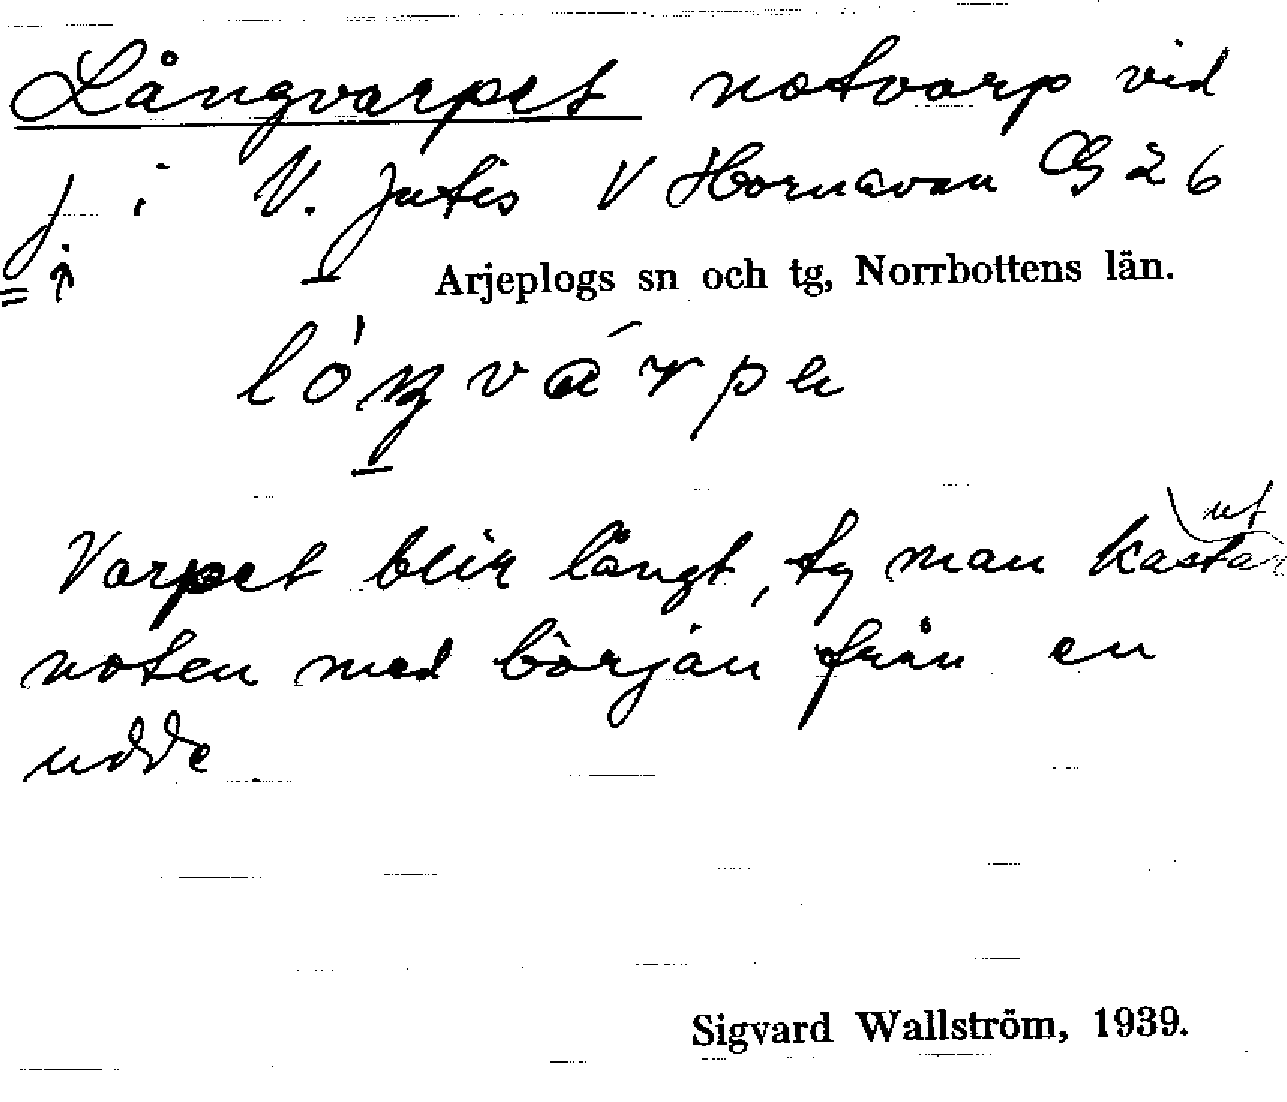 Långvarpet notvarp vid
j i V. Jutis V Hornavan G 26
Arjeplogs sn och tg, Norrbottens län.
Varpet blir långt, ty man kastar ut
noten med början från en
udde.
Sigvard Wallström, 1939.